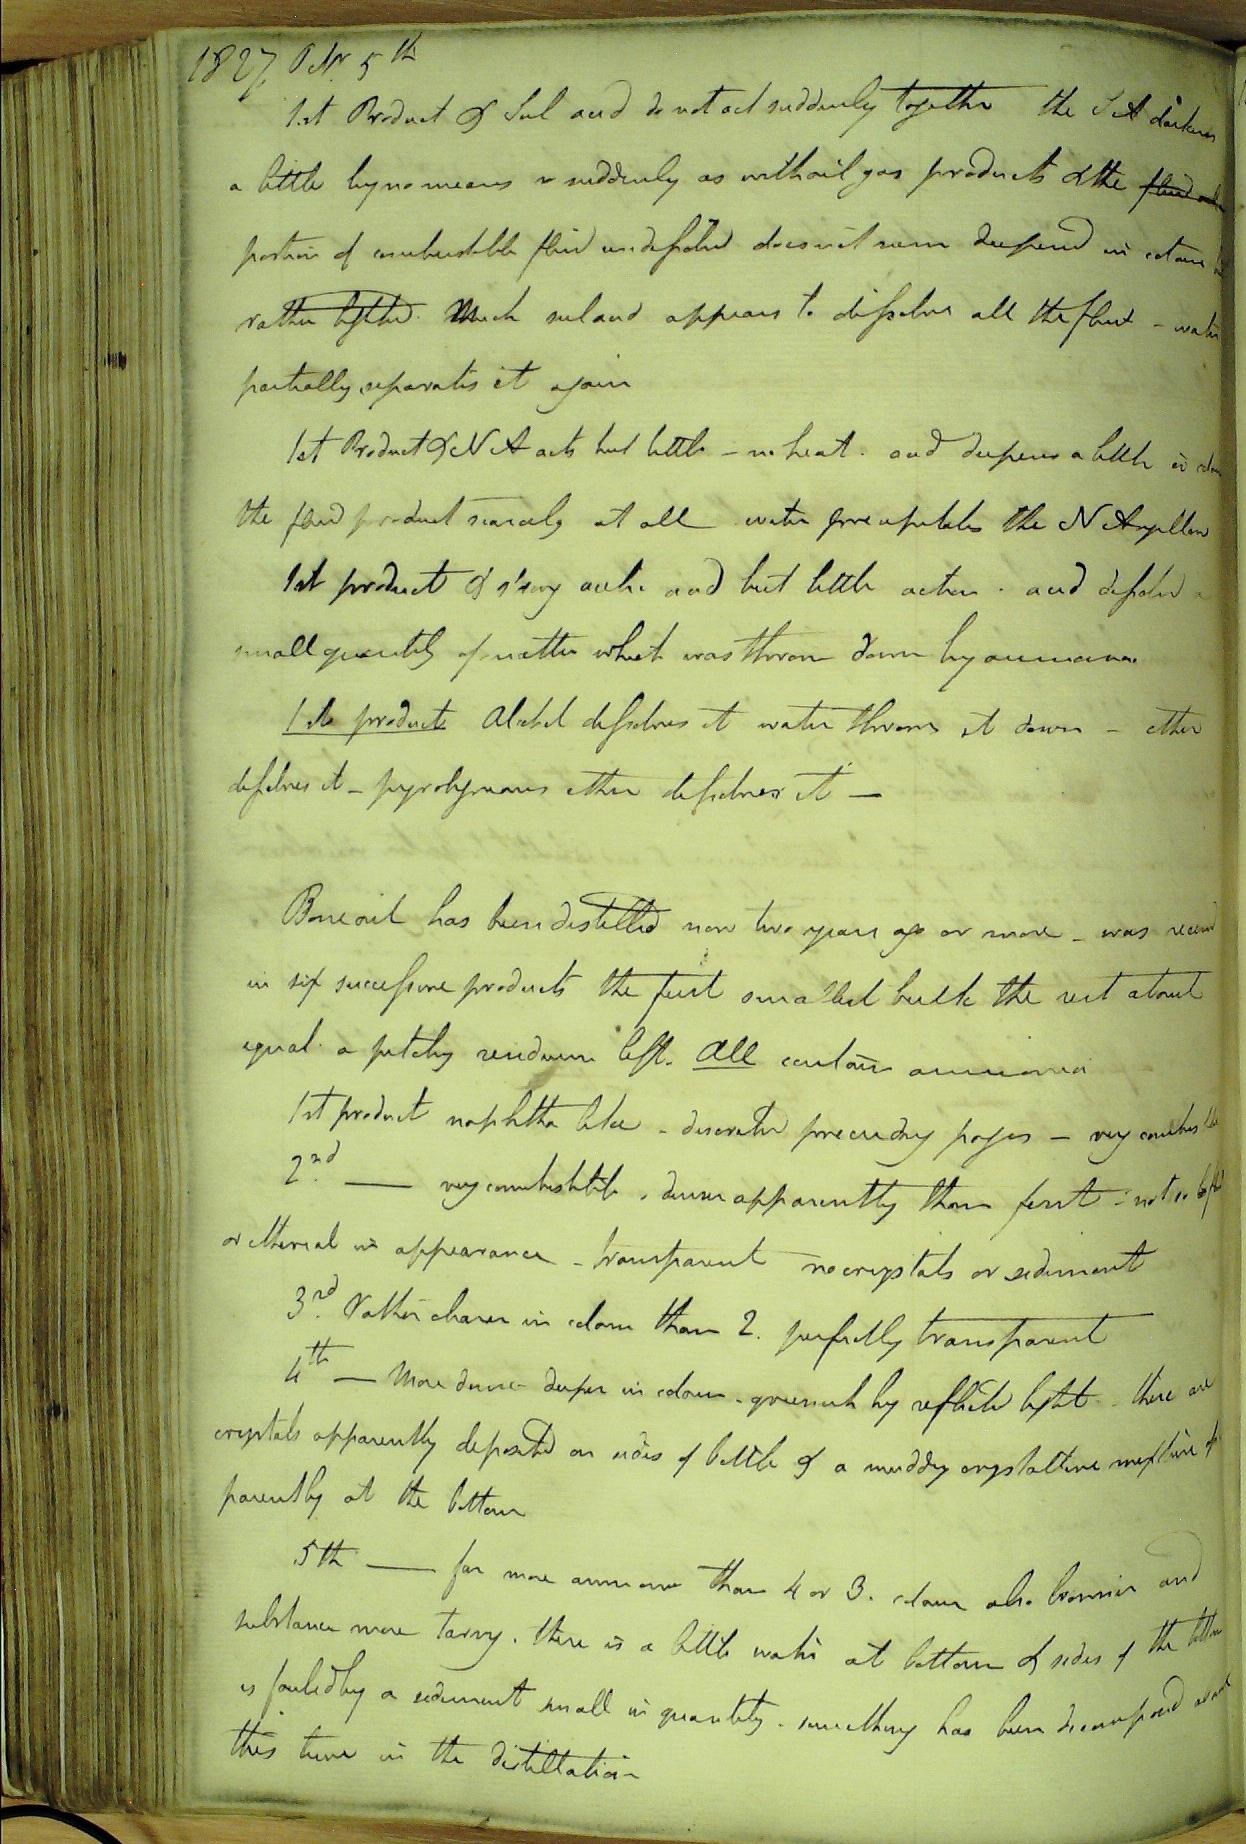 1827 Oct. 5th
1st Product & Sul acid do not act suddenly together the S A darkens
a little by no means so suddenly as with oil gas products & the
portion of combustible fluid undissolved does not seem deepened in colour
rather lighter. Much sul acid appears to dissolve all the fluid - water
partially separates it again
1st Product & N A acts but little - no heat. acid deepens a little in colour
the fluid product scarcely at all water precipitates the N A yellow
1st product & strong acetic acid but little action. acid dissolved a
small quantity of matter which was thrown down by ammonia
1st products Alcohol dissolves it water throws it down - ether
dissolves it - pyroligneous ether dissolves it —
Bone oil has been distilled now two years ago or more - was received
in six successive products the first smallest bulk the rest about
equal a pitchy residuum left. All contain ammonia
1st product naphtha like - described preceding pages - very combustible
2nd. — very combustible. denser apparently than first - not so light
or ethereal in appearance - transparent no crystals or sediment
3rd. Rather clearer in colour than 2. perfectly transparent
4th — More dense deeper in colour. greenish by reflected light. there are
crystals apparently deposited on sides of bottle & a muddy crystalline mixture ap
parently at the bottom
5th — far more ammonia than 4 or 3. colour also browner and
substance more tarry. there is a little water at bottom & sides of the bottle
is fouled by a sediment small in quantity. something has been decomposed about
this time in the distillation